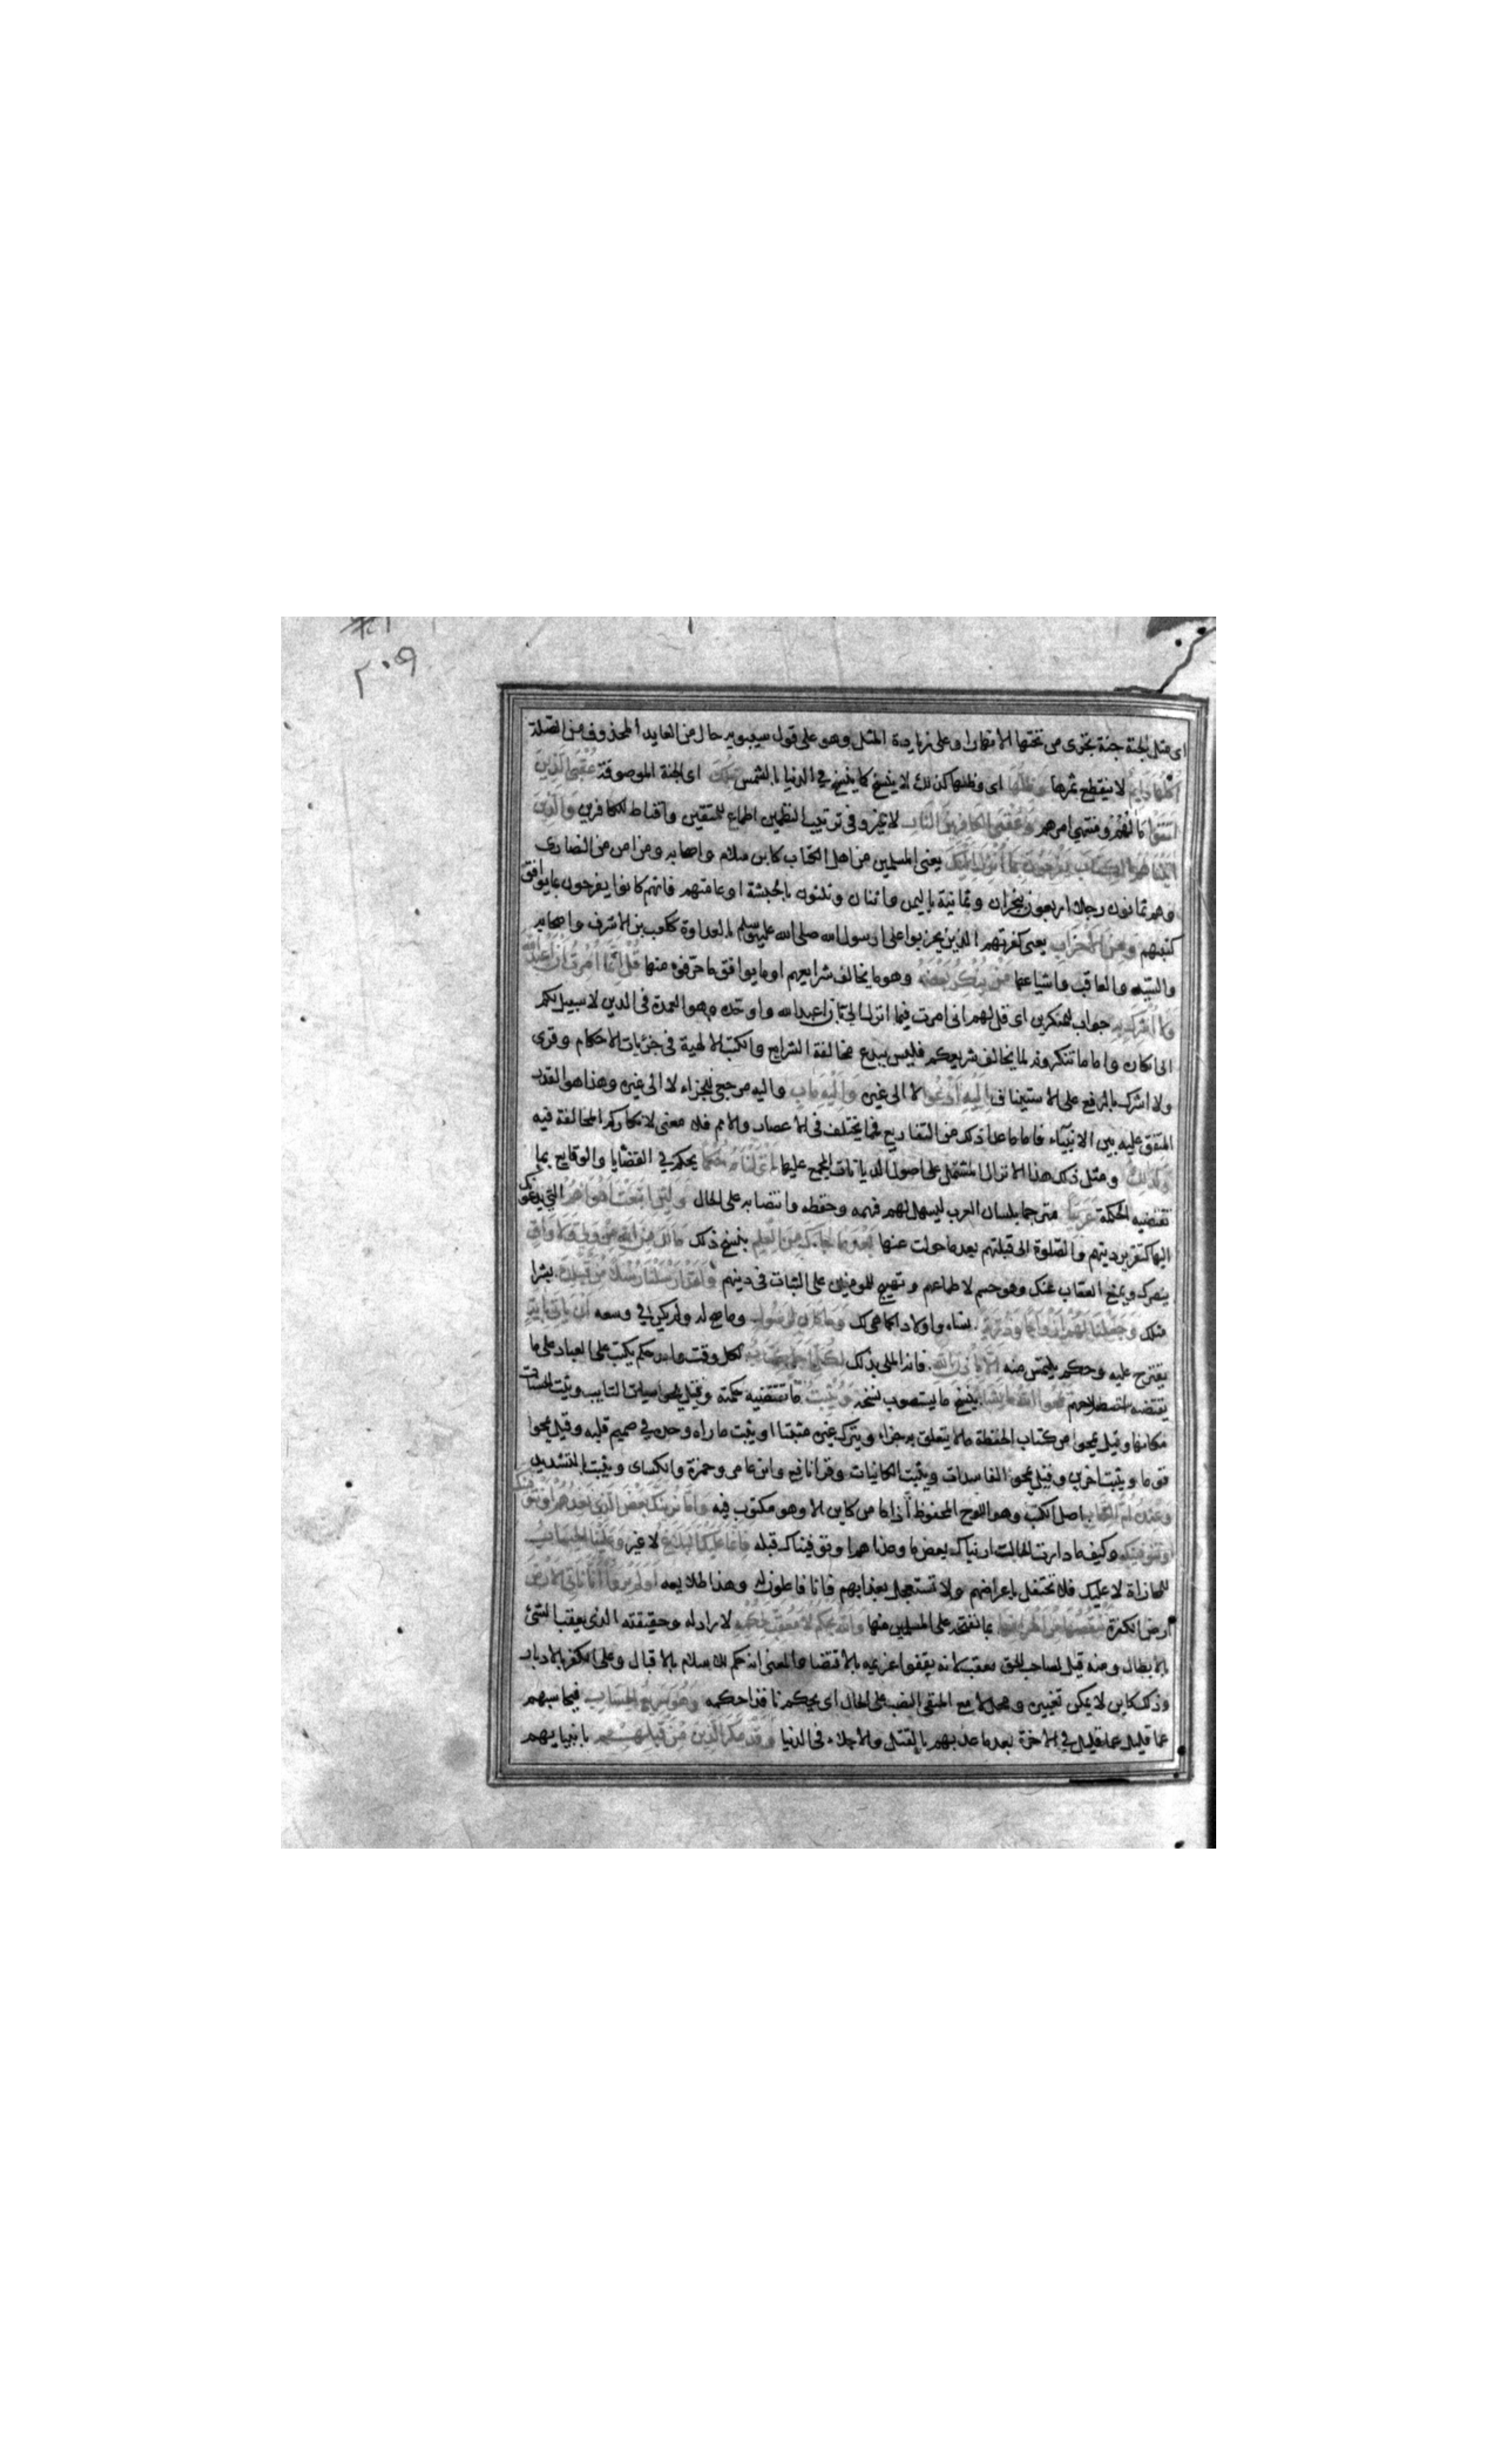 ٢٠٩
اى مثل الجنة جنة تجرى من تحتها الانهار او على زيادة المثل وهو على قول سيبويه حال من العايد المحذوف من الصلة
اكلها دايم لا ينقطع ثمرها وظلها اى وظلها كذلك لا ينسخ كما ينسخ في الدنيا بالشمس تلك اى الجنة الموصوفة عقبى الذين
اتقوا مالهم ومنتهى امرهم وعقبى الكافرين النار لا غير وفى ترتيب النظمين اطماع للمتقين واقناط للكافرين والذين
اتيناهم الكتاب يفرحون بما انزل اليك يعنى المسلمين من اهل الكتاب كابن سلام واصحابه ومن امن من النصارى
وهم ثمانون رجلا اربعون بنجران وثمانية باليمن واثنان وثلثون بالحبشة او عامتهم فانهم كانوا يفرحون بما يوافق
كتبهم ومن الاحزاب يعنى كفرتهم الذين تحزبوا على رسول الله صلى الله عليه وسلم بالعداوة ككعب بن الاشرف واصحابه
والسيد والعاقب واشياعهما من ينكر بعضه وهو ما يخالف شرايعهم او ما يوافق ما حرفوه منها قل انما امرت ان اعبد الله
ولا اشرك به جواب للمنكرين اى قل لهم انى امرت فيما انزل الى بان اعبد الله واوحده وهو العمدة فى الدين لا سبيل لكم
الى انكاره واما ما تنكرونه لما يخالف شريعكم فليس ببدع مخالفة الشرايع والكتب الالهية فى جزئيات الاحكام وقرى
ولا اشرك بالرفع على الاستيناف اليه ادعوا لا الى غيره واليه ماب واليه مرجعى للجزاء لا الى غيره وهذا هو القدر
المتفق عليه بين الانبياء فاما ما عدا ذلك من التفاريع فمما يختلف فى الاعصار والامم فلا معنى لانكاركم المخالفة فيه
وكذلك ومثل ذلك هذا الانزال المشتمل على اصول الديانات المجمع عليها انزلناه حكما يحكم في القضايا والوقايع بما
تقتضيه الحكمة عربيا مترجما بلسان العرب ليسهل لهم فهمه وحفظه وانتصابه على الحال ولين اتبعت اهواءهم التى يدعونك
اليها كتقرير دينهم والصلوة الى قبلتهم بعد ما حولت عنها بعد ما جاءك من العلم بنسخ ذلك مالك من الله من ولى ولا واق
ينصرك ويمنع العقاب عنك وهو حسم لاطماعهم وتهييج للمومنين على الثبات فى دينهم ولقد ارسلنا رسلا من قبلك بشرا
مثلك وجعلنا لهم ازواجا وذرية نساء واولادا كما هى لك وما كان لرسول وما صح له ولم يكن في وسعه ان ياتى باية
يقترح عليه وحكم يلتمس منه الا باذن الله فانه الملى بذلك لكل اجل كتاب لكل وقت وامد حكم يكتب على العباد على ما
يقتضيه استصلاحهم يمحوا الله ما يشاء ينسخ ما يستصوب نسخه ويثبت ما تقتضيه حكمته وقيل يمحوا سيات التايب ويثبت الحسنات
مكانها وقيل يمحوا من كتاب الحفظة ما لا يتعلق به جزاء ويترك غيره مثبتا او يثبت ما راه وحده في صميم قلبه وقيل يمحوا
قوما ويثبت اخرين وقيل يمحو الفاسدات ويثبت الكاينات وقرا نافع وابن عامر وحمزة والكساى ويثبت بالتشديد
وعنده ام الكتاب اصل الكتب وهو اللوح المحفوظ اذ ما من كاين الا وهو مكتوب فيه واما نرينك بعض الذى نعدهم او نتوفينك
او نتوفينك وكيف ما دارت الحال اريناك بعض ما وعدناهم او توفيناك قبله فانما عليك البلاغ لا غير وعلينا الحساب
للمجازاة لا عليك فلا تحتفل باعراضهم ولا تستعجل بعذابهم فانا فاعلون له وهذا طلايعه اولم يروا انا ناتى الارض
ارض الكفرة ننقصها من اطرافها بما نفتحه على المسلمين منها والله يحكم لا معقب لحكمه لا راد له وحقيقته الذى يعقب الشئ
بالابطال ومنه قيل لصاحب الحق معقب لانه يقفوا غريمه بالاقتضا والمعنى انه حكم للاسلام بالاقبال وعلى الكفر بالادبار
وذلك كاين لا يمكن تغييره ومحل لا مع المنفى النصب على الحال اى يحكم نافذا حكمه وهو سريع الحساب فيحاسبهم
عما قليل عما قليل في الاخرة بعد ما عذبهم بالقتل والاجلاء فى الدنيا وقد مكر الذين من قبلهم بانبيايهم